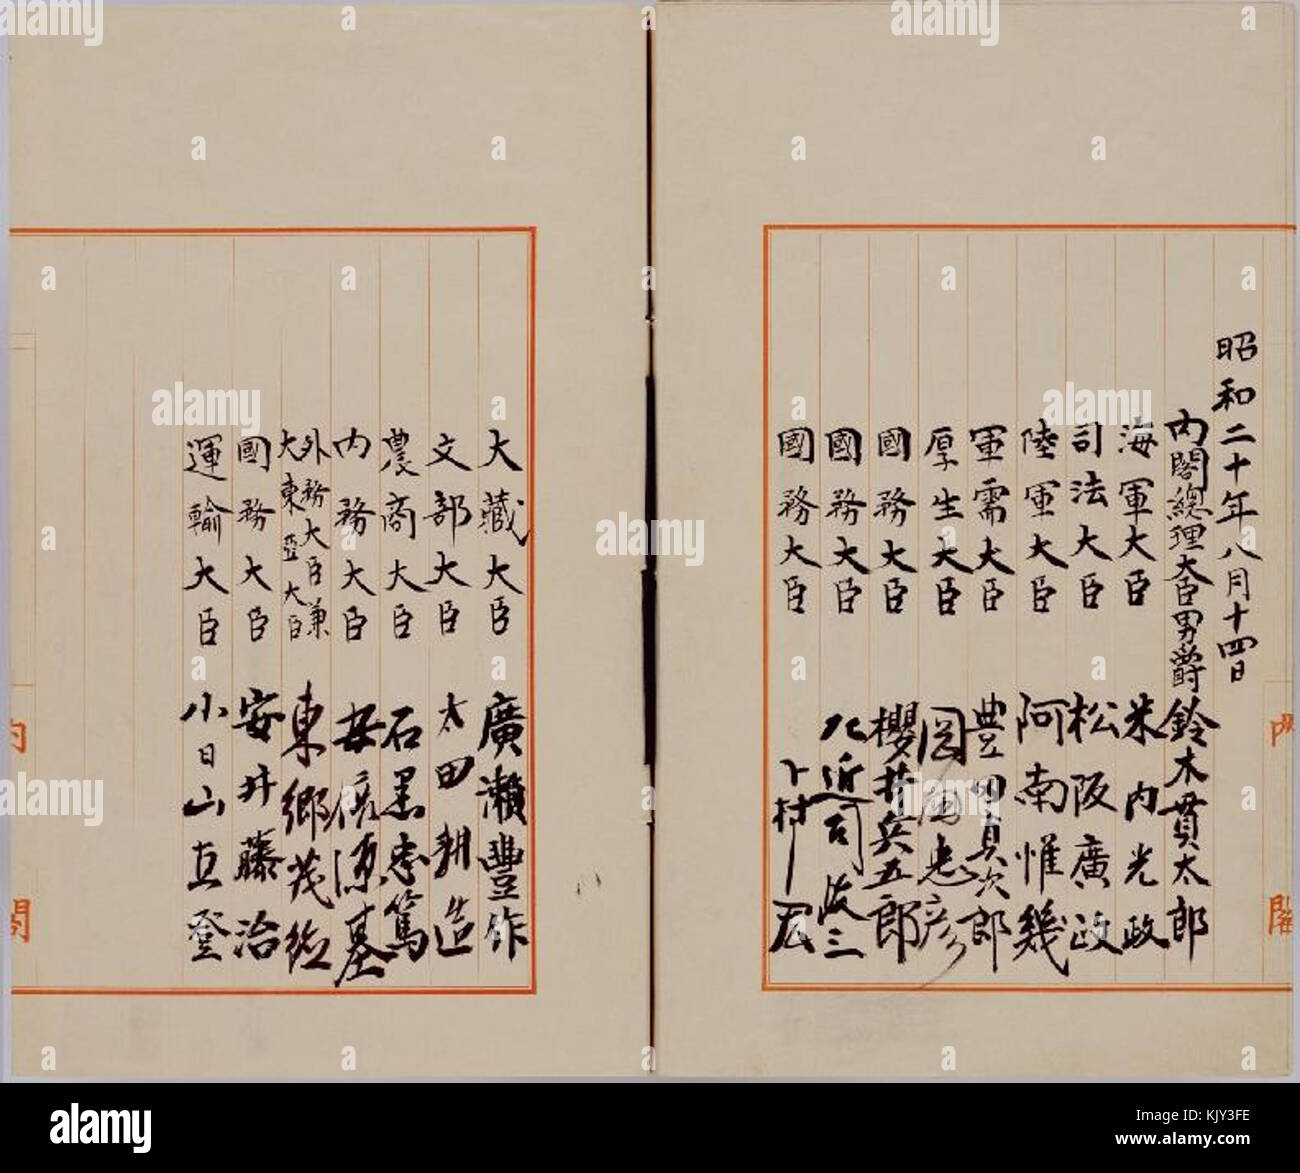 昭和二十年八月十四日
内閣總理大臣男爵鈴木貫太郎
海軍大臣 米内光政
司法大臣 松阪廣政
陸軍大臣 阿南惟幾
軍需大臣 豊田貞次郎
厚生大臣 岡田忠彦
國務大臣 櫻井兵五郎
國務大臣 左近司政三
國務大臣 下村宏
大藏大臣 廣瀬豐作
文部大臣 太田耕造
農商大臣 石黒忠篤
内務大臣 安倍源基
外務大臣兼
大東亞大臣 東郷茂徳
國務大臣 安井藤治
運輸大臣 小日山直登
内閣
内閣
alamy
Image ID: KJY3FE
www.alamy.com